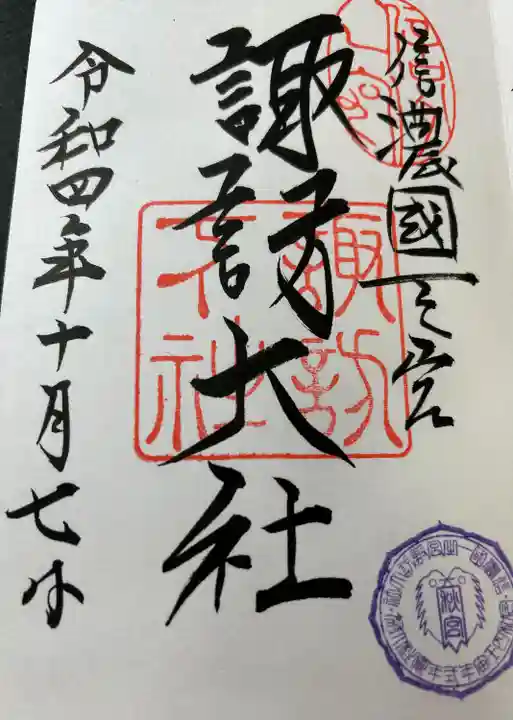 信濃國一之宮
諏訪大社
諏訪
大社
令和四年十月七日
秋宮